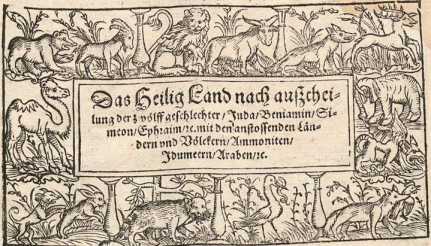 Das Heilig Land nach außchei-
lung der zwölff geschlechter / Juda / Beniamin / Si-
meon / Ephraim / ꝛc. mit den anstossenden Län-
dern vnd Völckern / Ammoniten /
Idumeern / Araben / ꝛc.